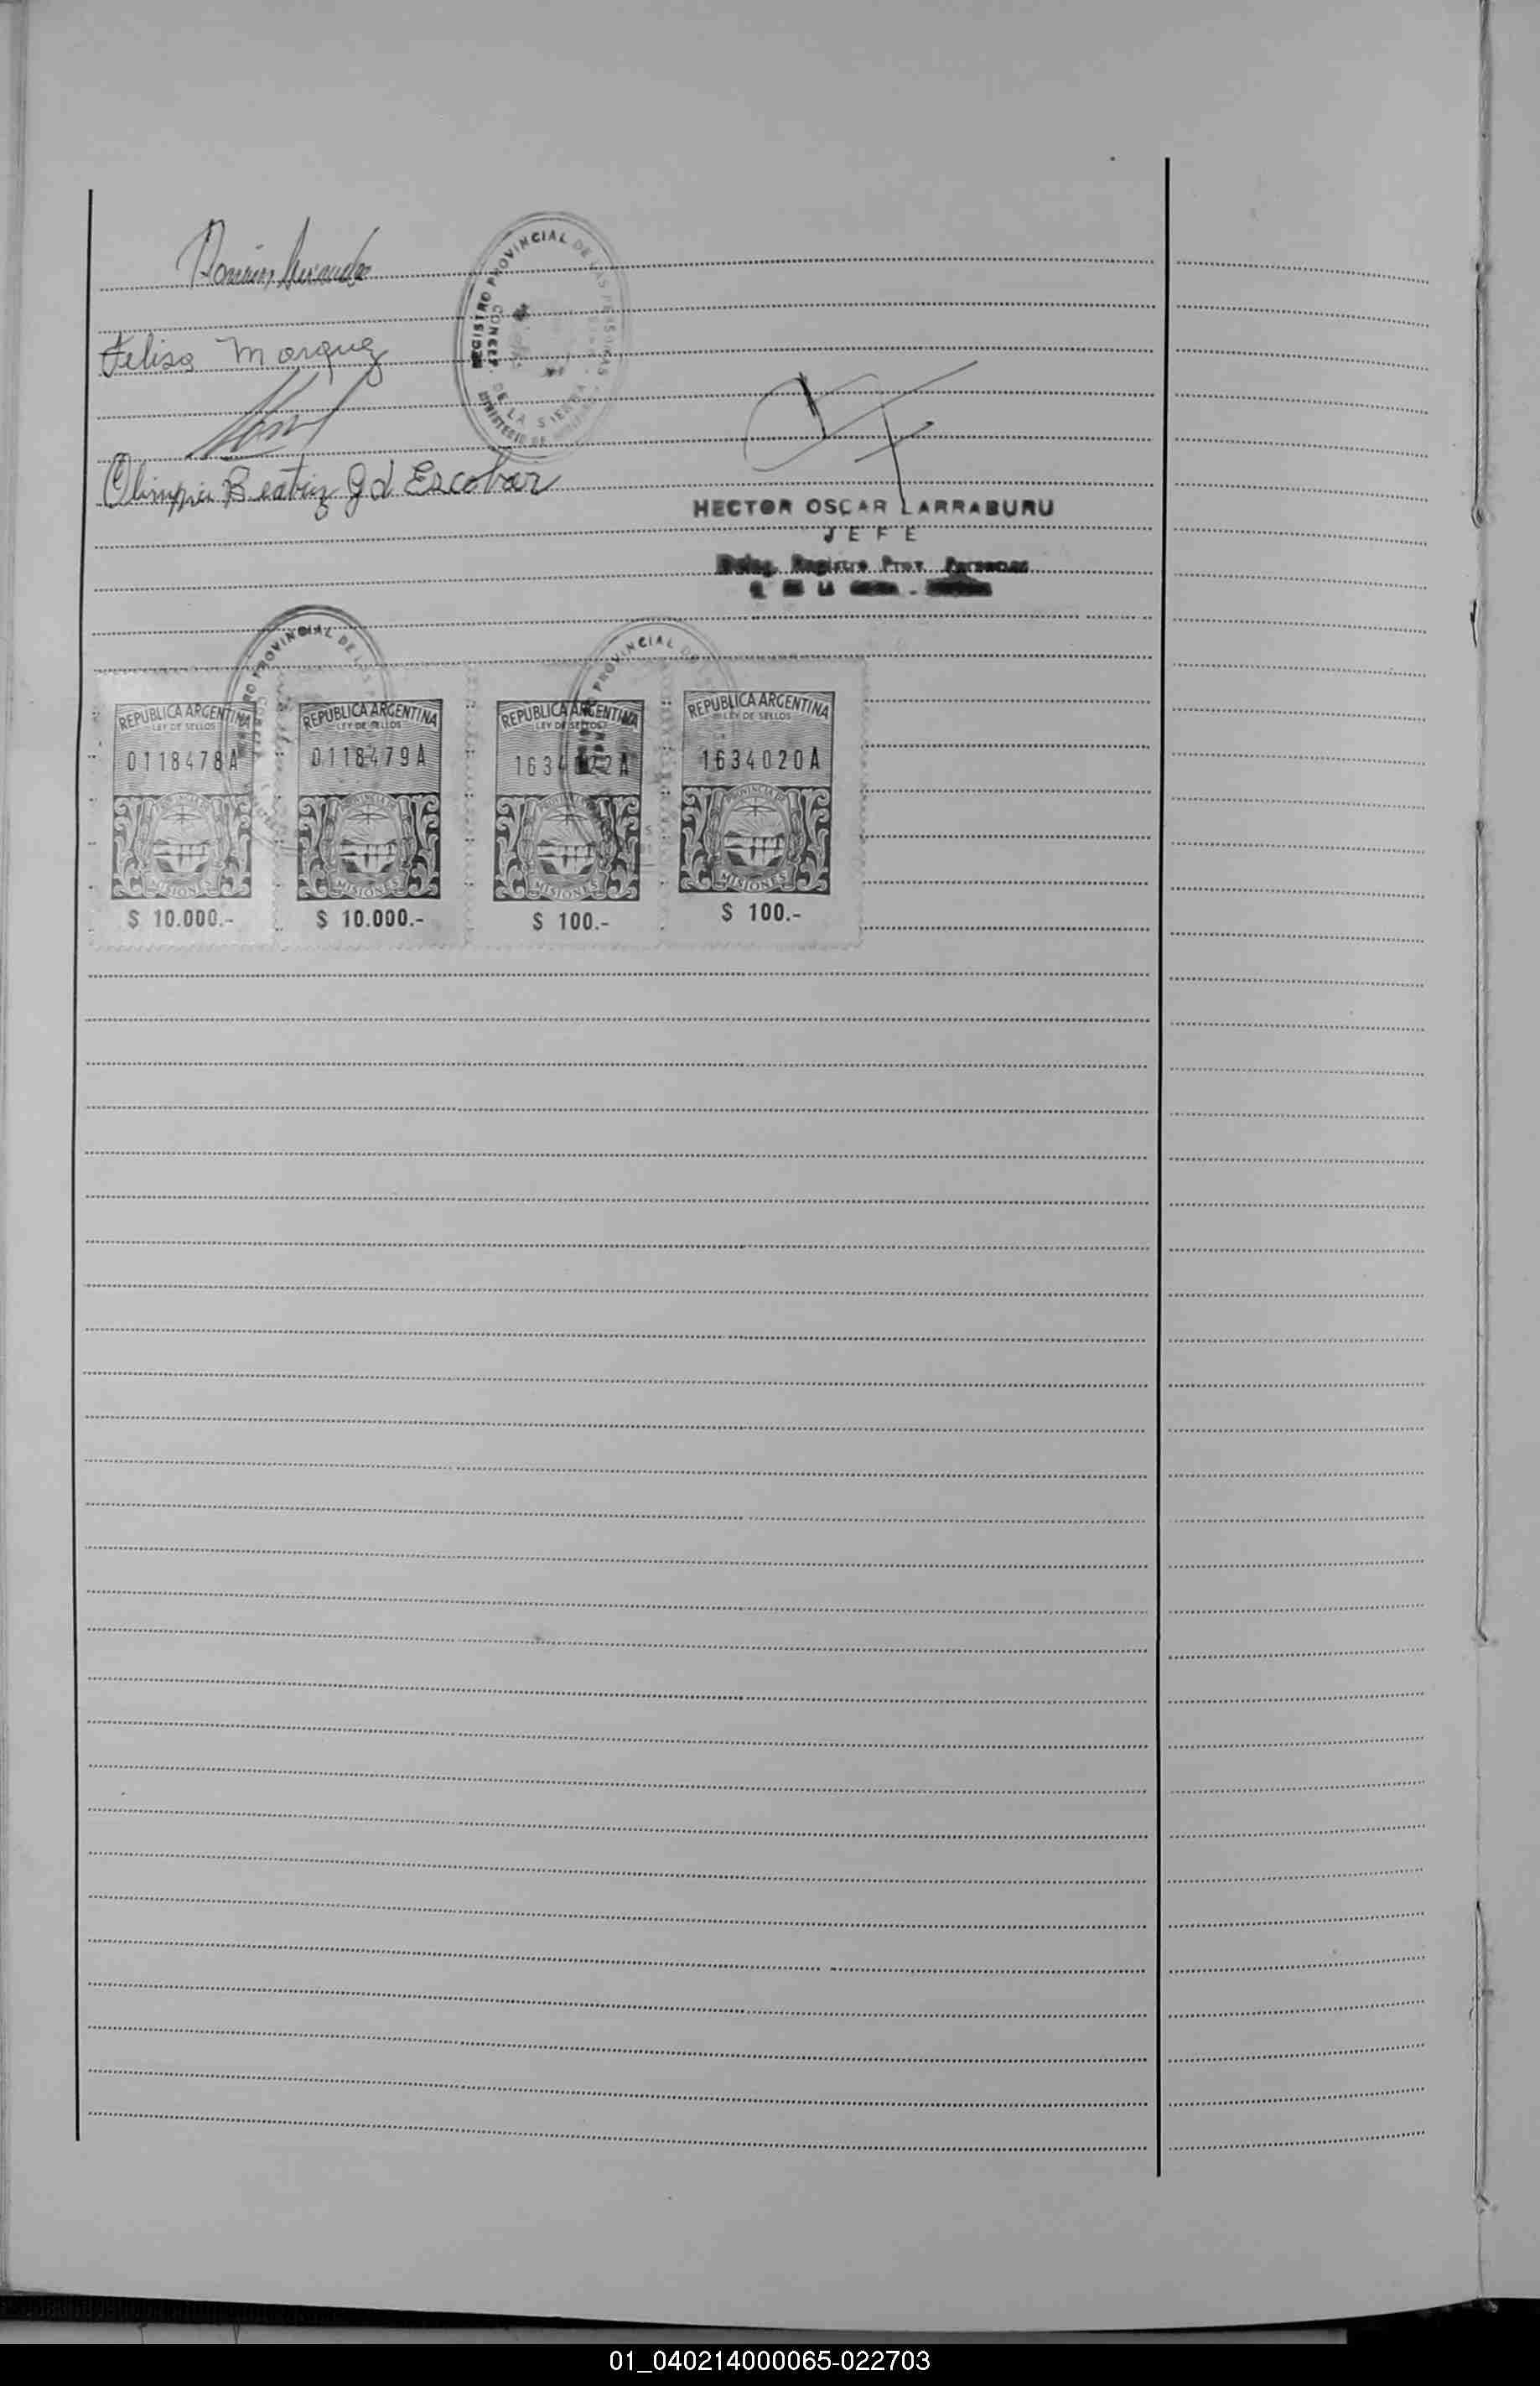 Felisa Marquez
Olimpia Beatriz G d Escobar
REGISTRO PROVINCIAL DE LAS PERSONAS
CONCEP.
DE LA SIERRA
MINISTERIO DE
HECTOR OSCAR LARRABURU
JEFE
Deleg. Registro Prov. Personas
C. DE LA
PROVINCIAL DE
PROVINCIAL
REPUBLICA ARGENTINA
LEY DE SELLOS
0118478A
MISIONES
$ 10.000.-
REPUBLICA ARGENTINA
LEY DE SELLOS
0118479A
MISIONES
$ 10.000.-
REPUBLICA ARGENTINA
LEY DE SELLOS
MISIONES
$ 100.-
REPUBLICA ARGENTINA
LEY DE SELLOS
1634020A
PROVINCIA DE
MISIONES
$ 100.-
01_040214000065-022703